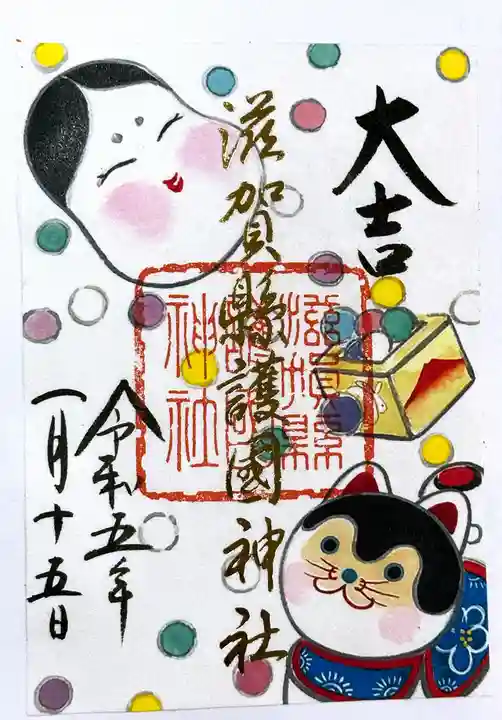 大吉
滋賀縣護國神社
滋賀縣
護國
神社
令和五年
一月十五日